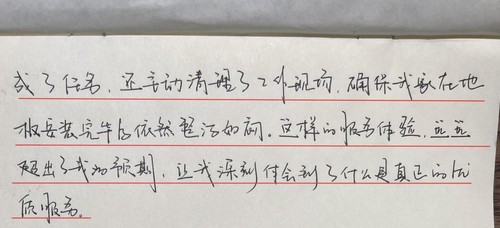 成了任务，还主动清理了工作现场，确保我家在地
板安装完毕后依然整洁如初。这样的服务体验，远远
超出了我的预期，让我深刻体会到了什么是真正的优
质服务。